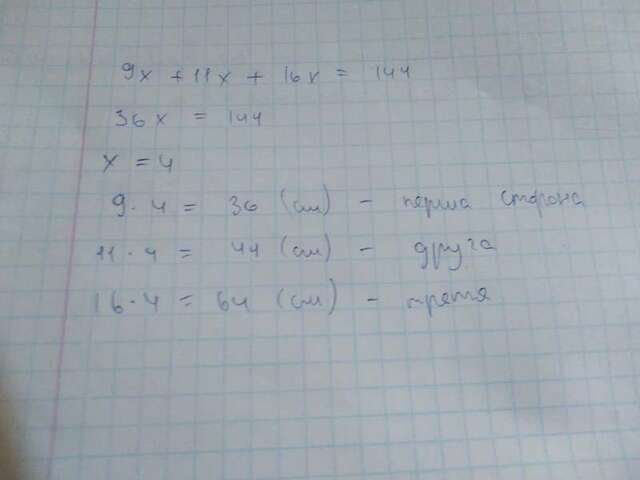 9x + 11x + 16x = 144
36x = 144
x = 4
9 · 4 = 36 (см) - перша сторона
11 · 4 = 44 (см) - друга
16 · 4 = 64 (см) - третя